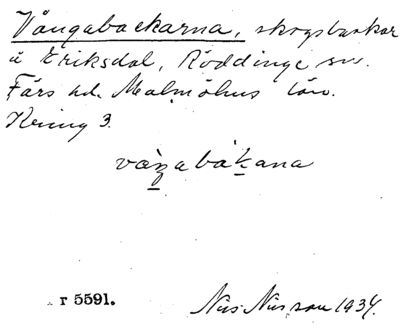 Vångabackarna, skogsbackar
å Eriksdal, Röddinge sn.
Färs hd. Malmöhus län.
Kring 3.
våŋabàkana
r 5591.
Nils Nilsson 1934.